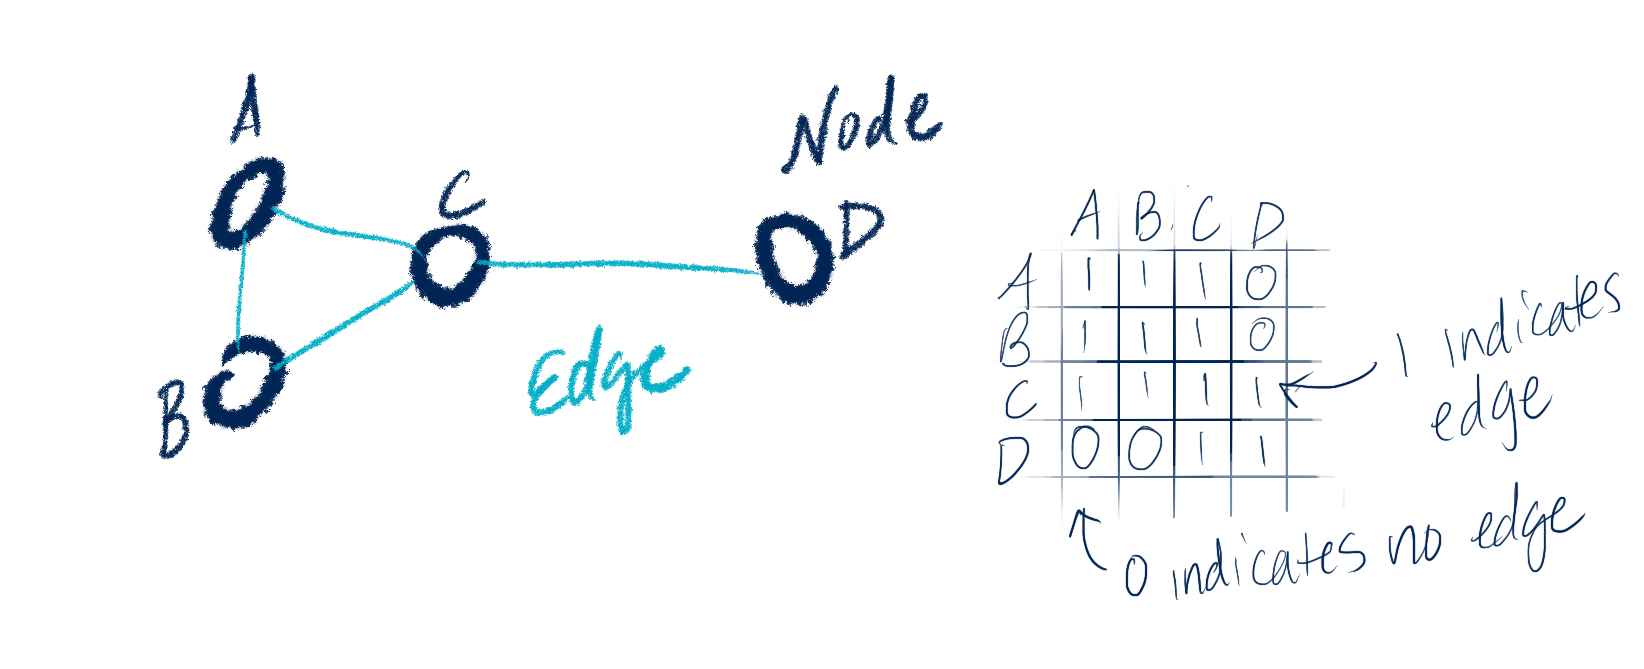 A
Node
C
D
B
Edge
A B C D
A 1 1 1 0
B 1 1 1 0
C 1 1 1 1
D 0 0 1 1
1 indicates
edge
0 indicates no edge